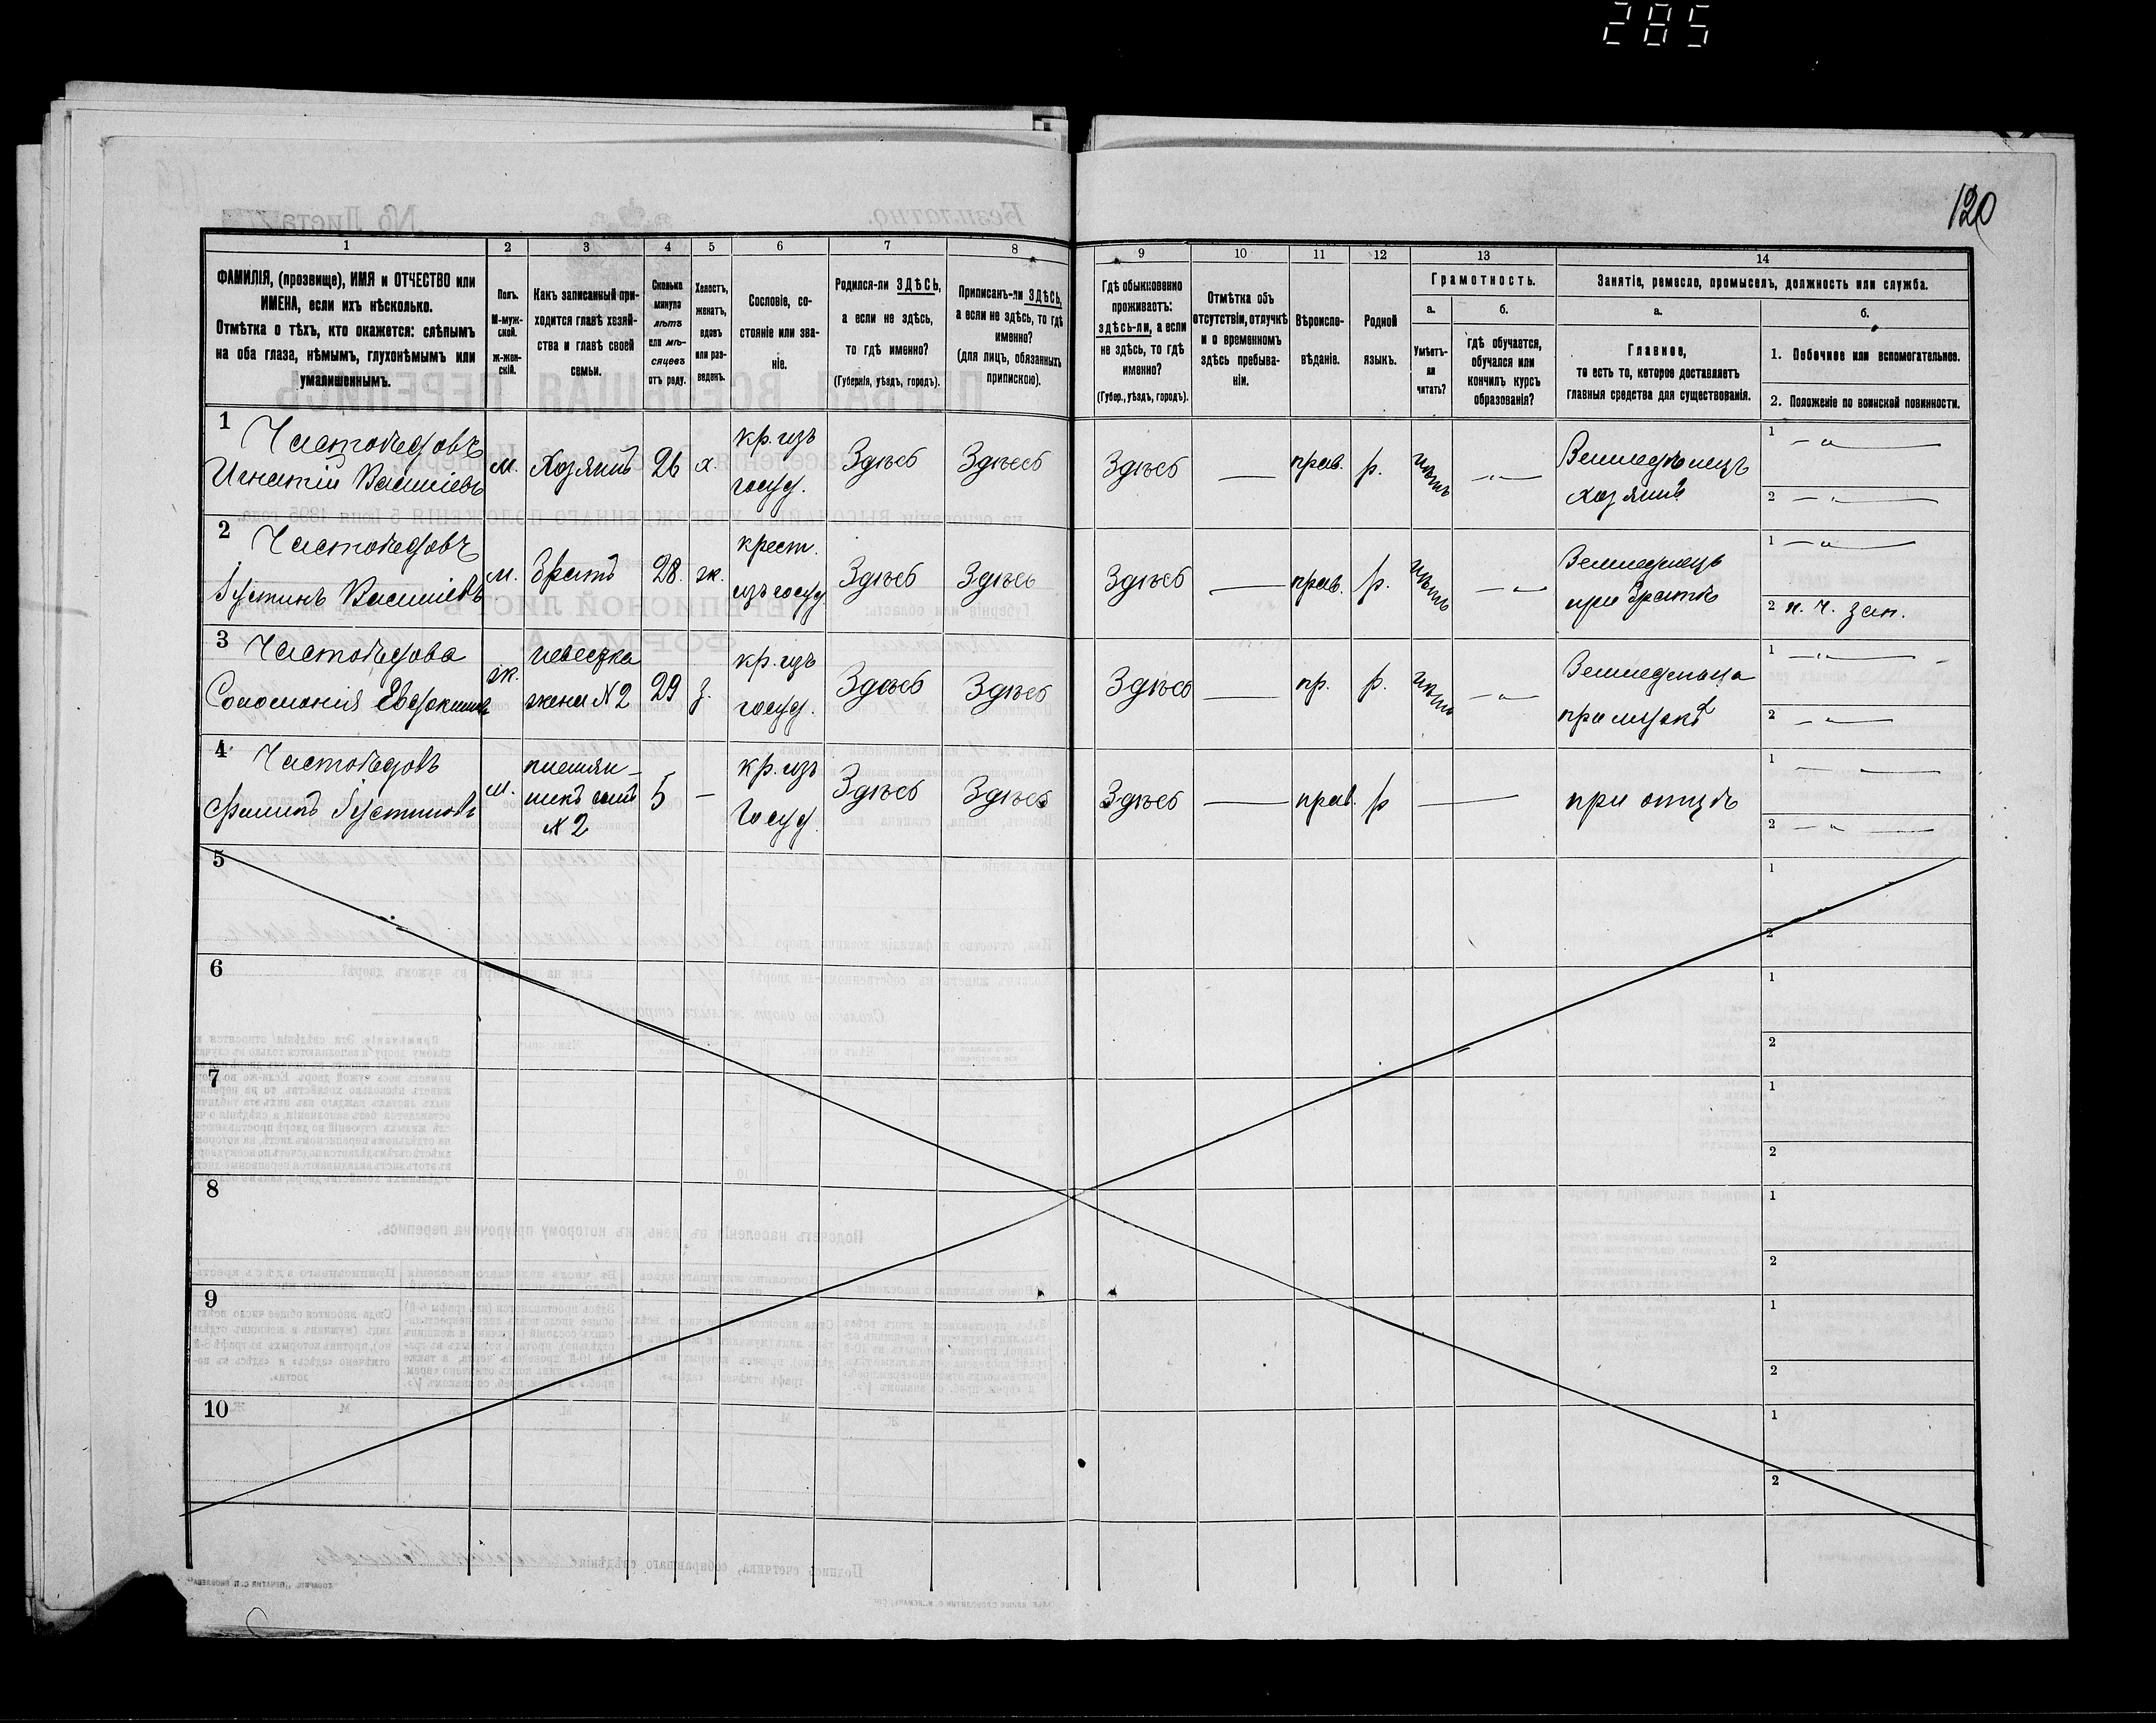 285
120
1
2
3
4
5
6
7
8
9
10
11
12
13
14
ФАМИЛІЯ, (прозвище), ИМЯ и ОТЧЕСТВО или
ИМЕНА, если ихъ нѣсколько.
Отмѣтка о тѣхъ, кто окажется: слѣпымъ
на оба глаза, нѣмымъ, глухонѣмымъ или
умалишеннымъ.
Полъ.
М-муж-
ской.
ж-жен-
скій.
Какъ записанный при-
ходится главѣ хозяй-
ства и главѣ своей
семьи.
Сколько
минуло
лѣтъ
или мѣ-
сяцевъ
отъ роду.
Холостъ,
женатъ,
вдовъ
или раз-
веденъ.
Сословіе, со-
стояніе или зва-
ніе.
Родился-ли ЗДѢСЬ,
а если не здѣсь,
то гдѣ именно?
(Губернія, уѣздъ, городъ).
Приписанъ-ли ЗДѢСЬ,
а если не здѣсь, то гдѣ
именно?
(для лицъ, обязанныхъ
припискою).
Гдѣ обыкновенно
проживаетъ:
здѣсь-ли, а если
не здѣсь, то гдѣ
именно?
(Губер., уѣздъ, городъ).
Отмѣтка объ
отсутствіи, отлучкѣ
и о временномъ
здѣсь пребыва-
ніи.
Вѣроиспо-
вѣданіе.
Родной
языкъ.
Грамотность.
а.
Умѣетъ-
ли
читать?
б.
гдѣ обучается,
обучался или
кончилъ курсъ
образованія?
Занятіе, ремесло, промыселъ, должность или служба.
а.
Главное,
то есть то, которое доставляетъ
главныя средства для существованія.
б.
1. Побочное или вспомогательное.
2. Положеніе по воинской повинности.
1
Частоѣдовъ
Игнатій Василіевъ
м.
Хозяинъ
26
х.
кр. изъ
госуд.
Здѣсь
Здѣсь
Здѣсь
—
прав.
р.
нѣтъ
— " —
Земледѣлецъ
хозяинъ
1 — " —
2 — " —
2
Частоѣдовъ
Іустинъ Василіевъ
м.
братъ
28.
ж.
крест.
изъ госуд
Здѣсь
Здѣсь
Здѣсь
—
прав.
р.
нѣтъ
— " —
Земледѣлецъ
при братѣ
1 — " —
2 н. ч. зап.
3
Частоѣдова
Соломонія Евдокимов
ж.
невестка
жена №2
29
з.
кр. изъ
госуд.
Здѣсь
Здѣсь
Здѣсь
—
пр.
р.
нѣтъ
— " —
Земледѣлица
при мужѣ
1 — " —
2 — " —
4
Частоѣдовъ
Филипъ Іустиновъ
м.
племян-
никъ сынъ
№ 2
5
—
кр. изъ
Госуд.
Здѣсь
Здѣсь
Здѣсь
—
прав.
р
—
при отцѣ
1 — —
2 — " —
5
1
2
6
1
2
7
1
2
8
1
2
9
1
2
10
1
2